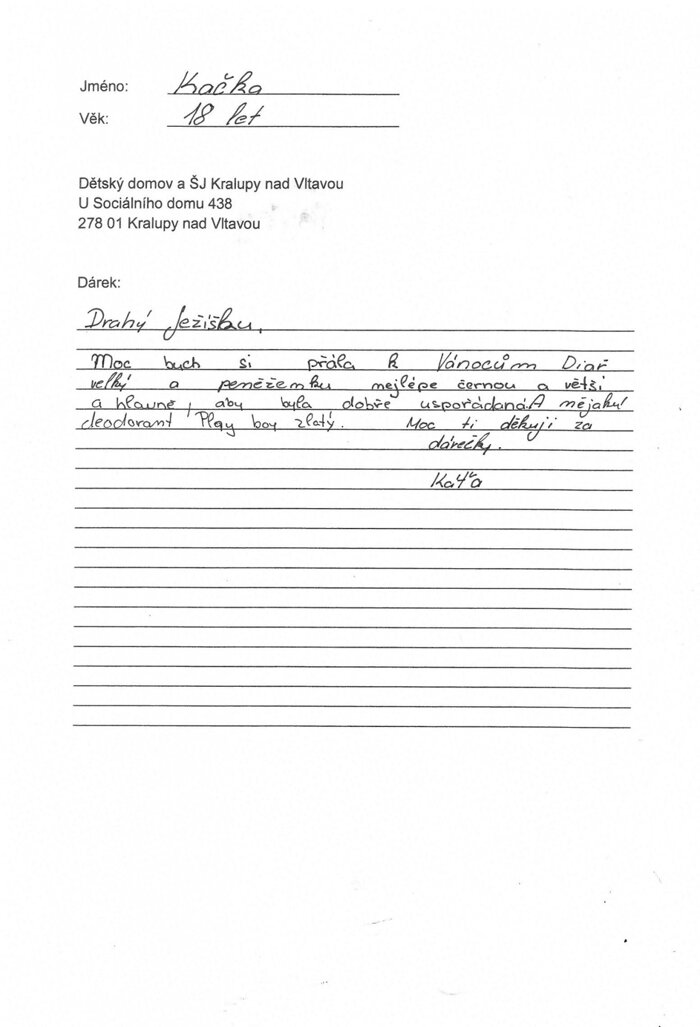 Jméno: Kačka
Věk: 18 let
Dětský domov a ŠJ Kralupy nad Vltavou
U Sociálního domu 438
278 01 Kralupy nad Vltavou
Dárek:
Drahý Ježíšku,
Moc bych si přála k Vánocům Diář
velký a peněženku nejlépe černou a větší
a hlavně, aby byla dobře uspořádaná. A nějaký
deodorant Play boy zlatý. Moc ti děkuji za
dárečky.
Kaťa